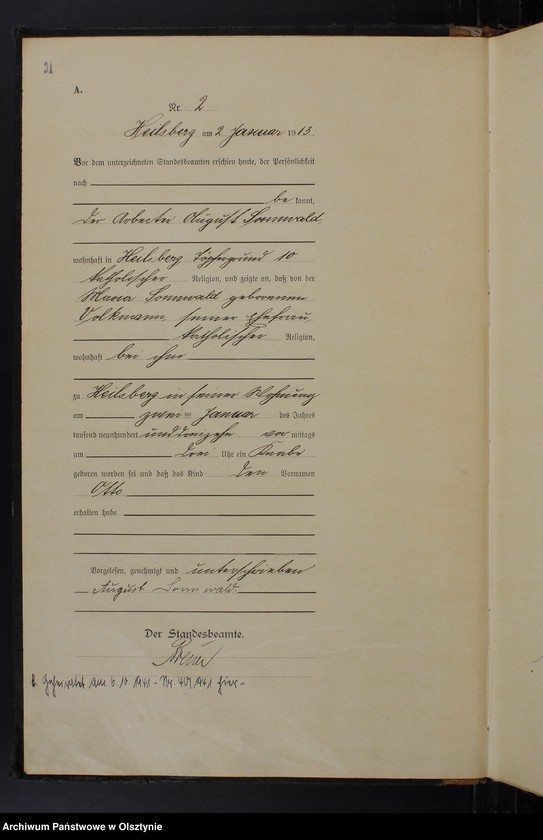 A.
Nr. 2
Heilsberg am 2 Januar 1913.
Vor dem unterzeichneten Standesbeamten erschien heute, der Persönlichkeit
nach
be kannt,
der Arbeiter August Sonnwald
wohnhaft in Heilsberg Töpfergrund 10
katholischer Religion, und zeigte an, daß von der
Maria Sonnwald geborenen
Volkmann, seiner Ehefrau
katholischer Religion,
wohnhaft bei ihm
zu Heilsberg in seiner Wohnung
am zwei ten Januar des Jahres
tausend neunhundert unddreizehn vor mittags
um drei Uhr ein Knabe
geboren worden sei und daß das Kind den Vornamen
Otto
erhalten habe.
Vorgelesen, genehmigt und unterschrieben
August Sonnwald.
Der Standesbeamte.
Geheiratet am 6.10.1941 - Nr. hier -
Archiwum Państwowe w Olsztynie